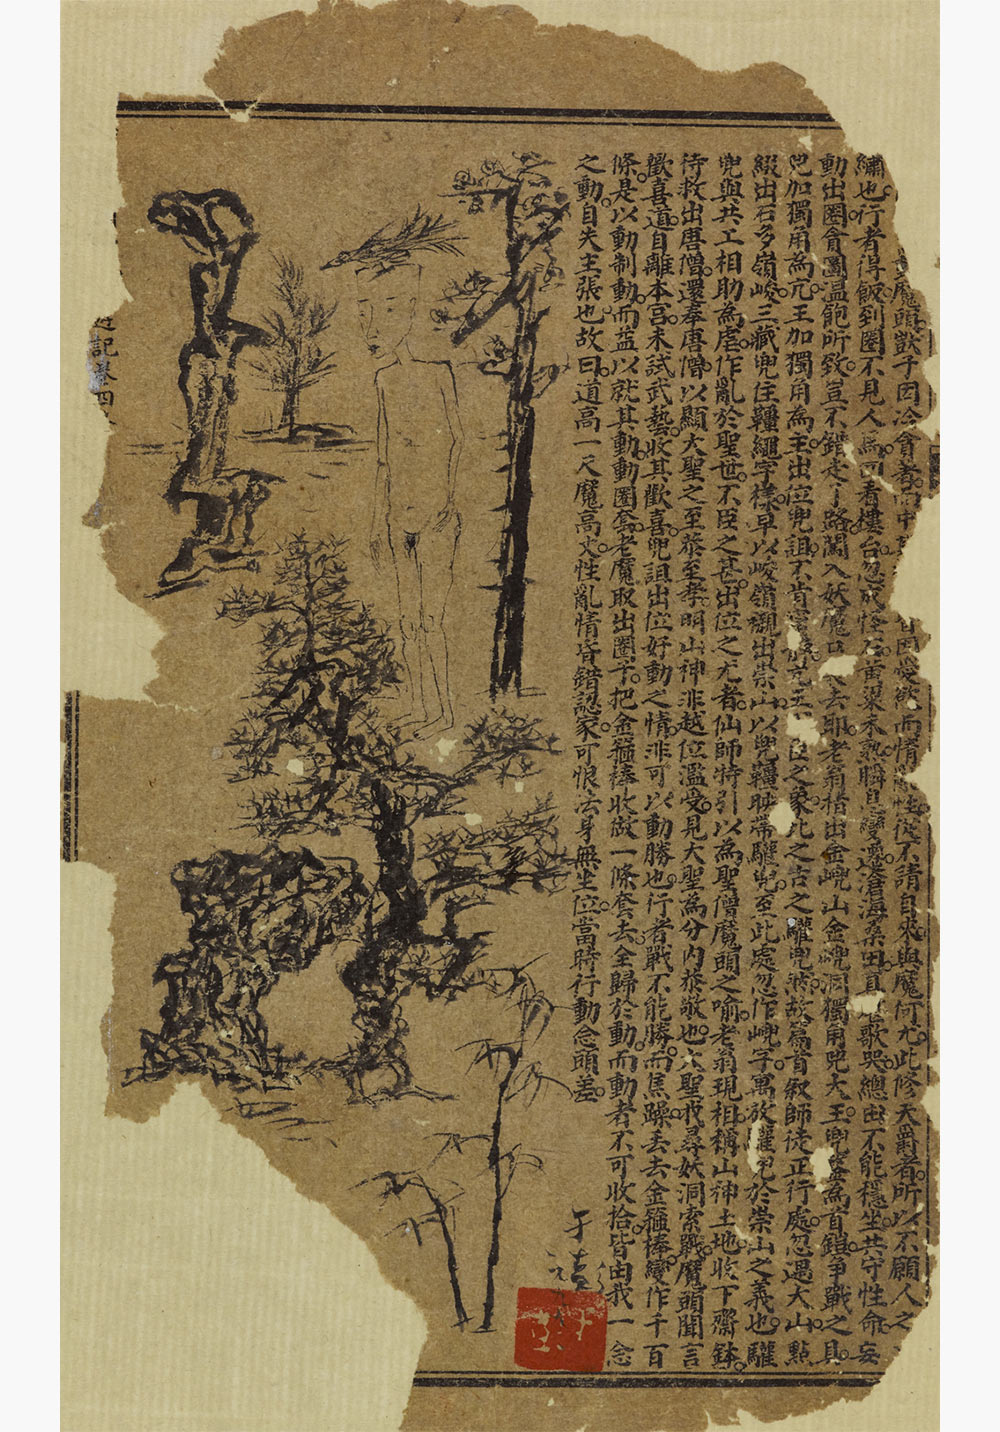 魔頭獃子因冷會著
因愛欲而情
性從不請自來與魔何尤此修天爵者所以不願人之
繡也行者得飯到圈不見人馬回看樓台忽成怪石黃梁未熟瞬息變遷滄海桑田真
歌哭總由不能穩坐共守性命妄
動出圈會圖溫飽所致豈不錯走了路闖入妖魔口
去耶老翁指出金𡸖山金𡸖洞獨角兕大王兕
為首鎧爭戰之具
兕加獨角為亢王加獨角為主出位兕詛不肯
之象比之吉之驩兜然故篇首叙師徒正行處忽遇大山點
綴出石多嶺峻三藏兜住韁繩字樣早以峻嶺襯出崇山以兜韁映帶驩兜至此處忽作𡸖字寓放驩兜於崇山之義也驩
兜與共工相助為虐作亂於聖世不臣之甚出位之尤者仙師特引以為聖僧魔頭之喻老翁現相稱山神土地收下齋鉢
待救出唐僧還奉唐僧以顯大聖之至恭至孝明山神非越位濫受見大聖為分內恭敬也大聖找尋妖洞索戰魔頭聞言
歡喜道自離本宮未試武藝收其歡喜兜詛出位好動之情非可以動勝也行者戰不能勝而焦躁丟去金箍棒變作千百
條是以動制動而益以就其動動圈套老魔取出圈子把金箍棒收做一條套去全歸於動而動者不可收拾皆由我一念
之動自失主張也故曰道高一尺魔高丈性亂情昏錯認家可恨法身無坐位當時行動念頭差
記卷四